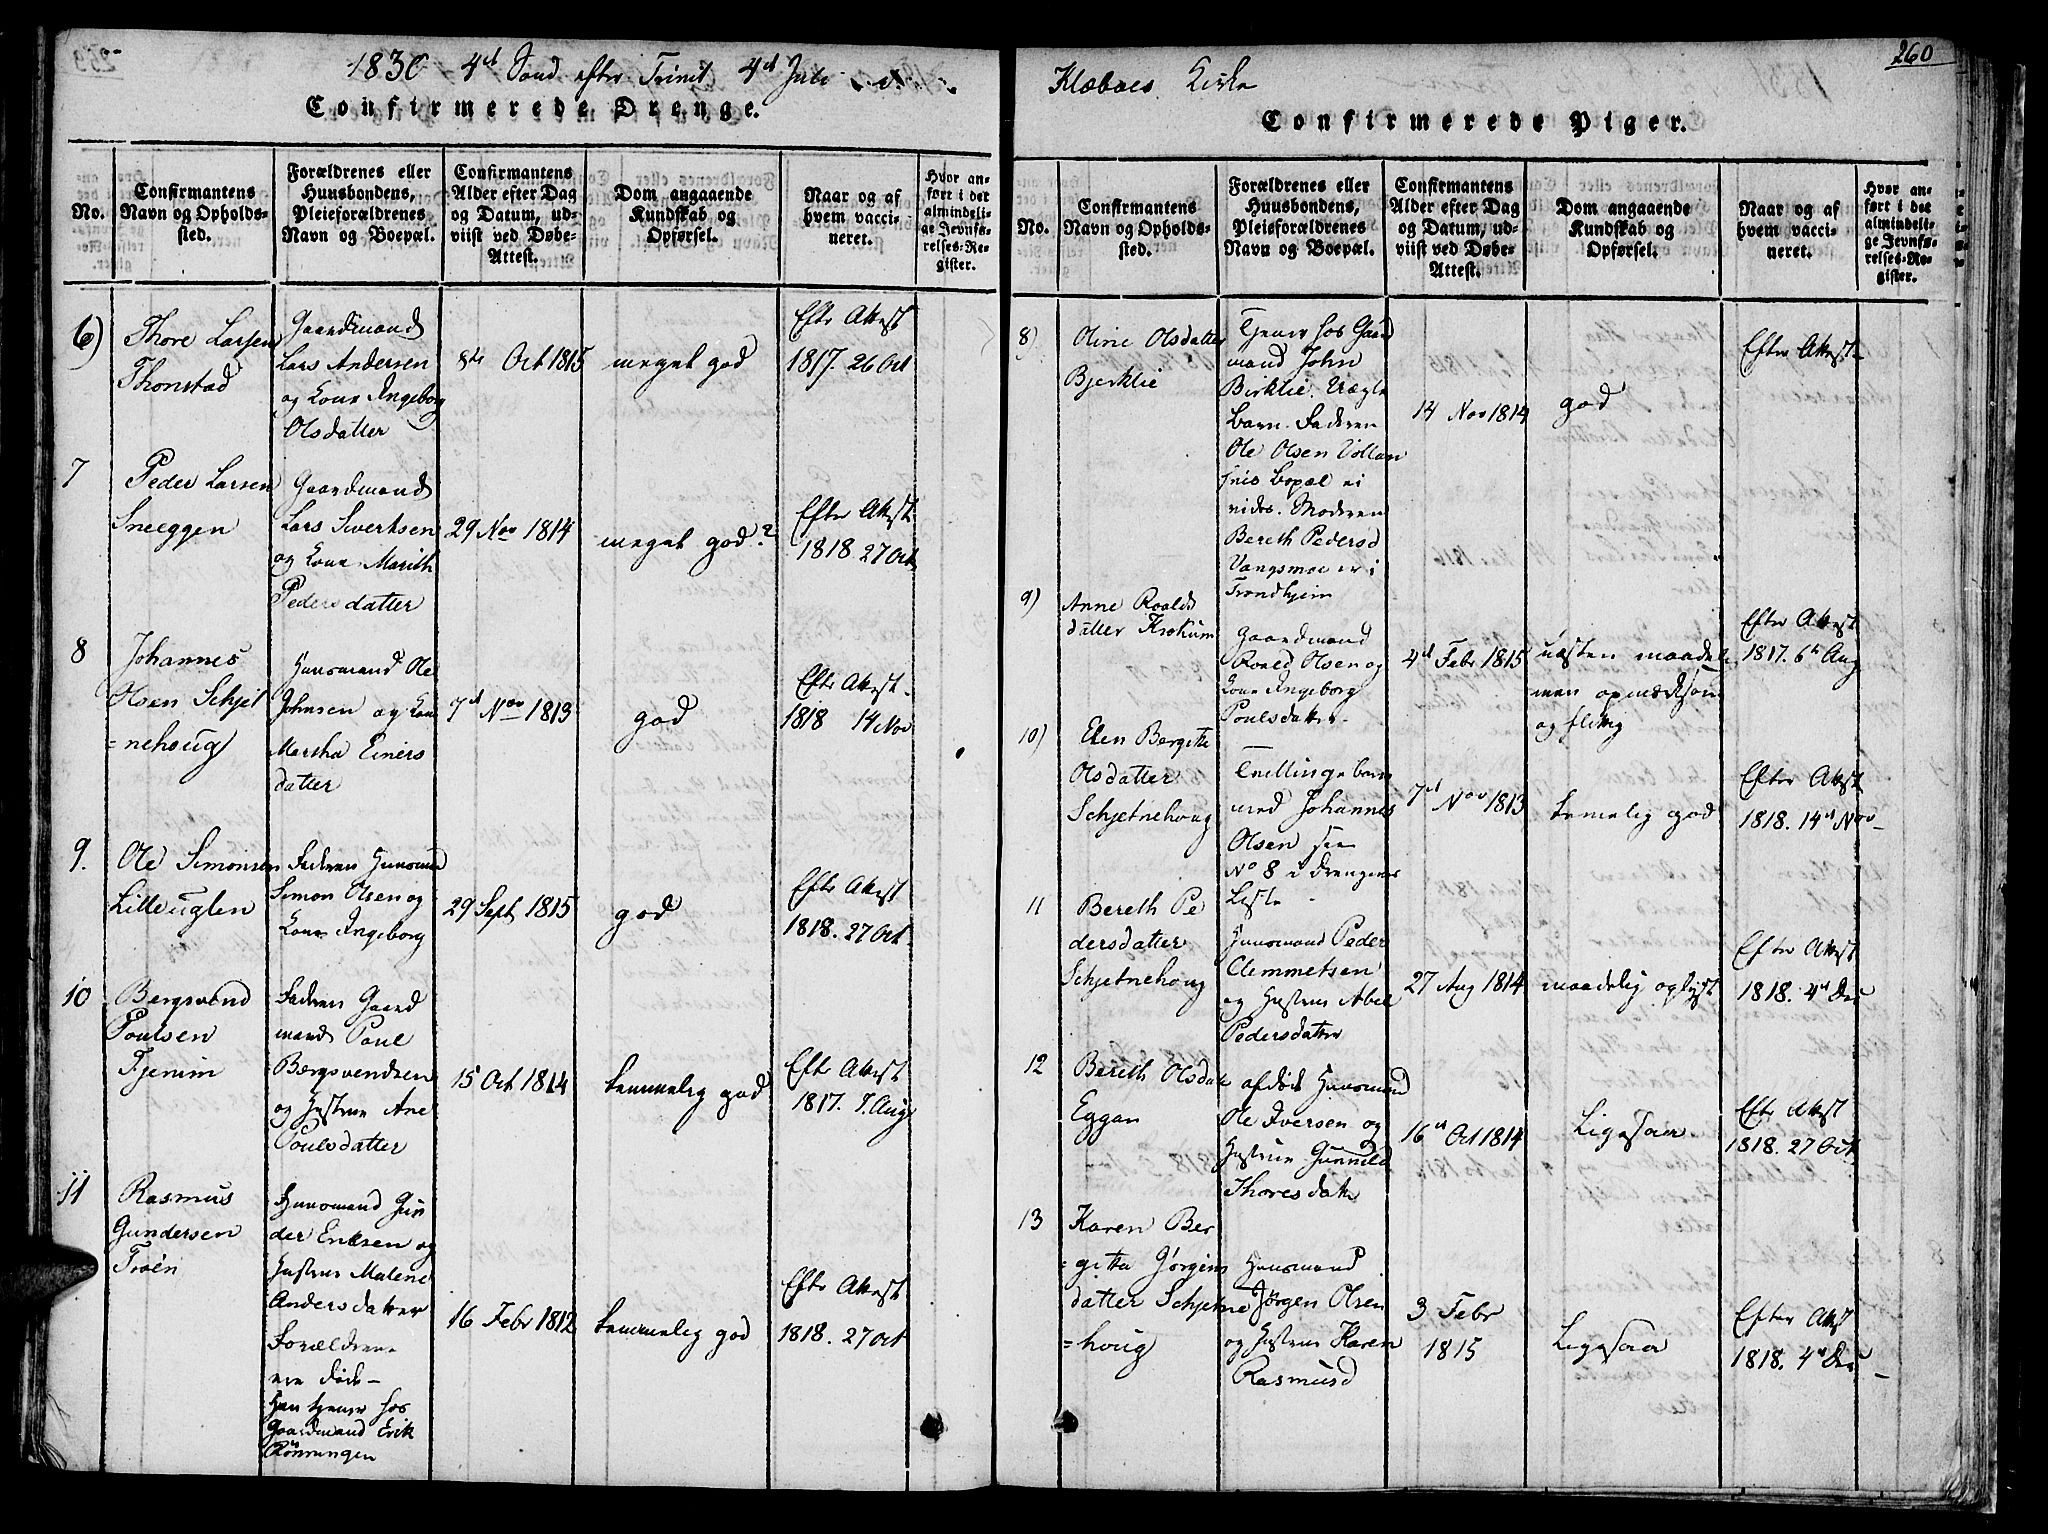 1830 4d Sønd efter Trinit 4d Juli
Confirmerede Drenge.
No.
Confirmantens
Navn og Opholds-
sted.
Forældrenes eller
Huusbondens,
Pleieforældrenes
Navn og Boepæl.
Confirmantens
Alder efter Dag
og Datum, ud-
viist ved Døbe-
Attest.
Dom angaaende
Kundskab og
Opførsel.
Naar og af
hvem vacci-
neret.
Hvor an-
ført i det
almindeli-
ge Jevnfø-
relses-Re-
gister.
6)
Thore Larsen
Thonstad
Gaardmand
Lars Andersen
og Kone Ingeborg
Olsdatter
8de Oct 1815
meget god
Efter Attest
1817. 26 Oct
7
Peder Larsen
Sneeggen
Gaardmand
Lars Sivertsen
og Kone Marith
Pedersdatter
29 Nov 1814
meget god?
Efter Attest
1818 27 Oct
8
Johannes
Olsen Schjet
=nehoug
Huusmand Ole
Johnsen og Kone
Martha Einers
datter
7d Nov 1813
god
Efter Attest.
1818 14 Nov
9.
Ole Simonsen
Lilleuglen
Faderen Huusmand
Simon Olsen og
Kone Ingeborg
29 Sept 1815
god
Efter Attest
1818. 27 Oct.
10
Bergsvend
Poulsen
Tjenim
Faderen Gaard
mand Poul
Bergsvendsen
og Hustrue Ane
Poulsdatter
15 Oct 1814
temmelig god
Efter Attest
1817. 7. Aug
11
Rasmus
Gundersen
Trøen
Huusmand Gun
der Ericsen og
Hustrue Malene
Andersdatter
Forældrene
ere døde -
Han tjener hos
Gaardmand Erik
Rønningen
16 Febr 1812
temmelig god
Efter Attest
1818. 27 Oct
260
Klæboes Kirke
Confirmerede Piger.
No.
Confirmantens
Navn og Opholds-
sted.
Forældrenes eller
Huusbondens,
Pleieforældrenes
Navn og Boepæl.
Confirmantens
Alder efter Dag
og Datum, ud-
viist ved Døbe-
Attest.
Dom angaaende
Kundskab og
Opførsel.
Naar og af
hvem vacci-
neret.
Hvor an-
ført i det
almindeli-
ge Jevnfø-
relses-Re-
gister.
8)
Oline Olsdatter
Bjerklie
Tjener hos Gaard
mand John
Birklie. Uægte
Barn. Faderen
Ole Olsen Vollan
hvis Bopæl ei
vides. Moderen
Bereth Pedersd
Vangsmoe er i
Trondhjem
14 Nov 1814
god
Efter Attest
9)
Anne Roalds
datter Krokum
Gaardmand
Roald Olsen og
Kone Ingeborg
Poulsdatter.
4d Febr 1815
næsten maadelig
men opmærksom
og flittig
Efter Attest
1817. 6d Aug
10)
Elen Bergitte
Olsdatter
Schjetnehoug
Tvillingebarn
med Johannes
Olsen see
No 8 i Drengenes
Liste
7d Nov 1813
temelig god
Efter Attest
1818. 14d Nov
11
Bereth Pe
dersdatter
Schjetnehoug
Huusmand Peder
Clemmetsen
og Hustrue Abel
Pedersdatter
27 Aug 1814
maadelig oplyst
Efter Attest
1818. 4d Dec
12
Bereth Olsdatr
Eggan
afdøde Huusmand
Ole Iversen og
Hustrue Gunnild
Thoresdatr
16d Oct 1814
Ligesaa
Efter Attest
1818. 27 Oct
13
Karen Ber
=gitta Jørgens
datter Schjetne
=houg
Huusmand
Jørgen Olsen
og Hustrue Karen
Rasmusd
3 Febr
1815
Ligesaa
Efter Attest
1818. 4d Dec